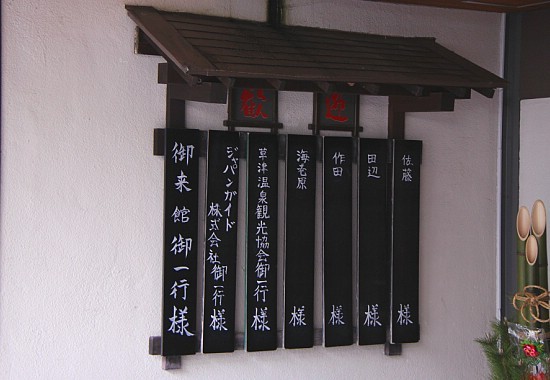 歓迎
佐藤 様
田辺 様
作田 様
海老原 様
草津温泉観光協会御一行様
ジャパンガイド
株式会社御一行様
御来館御一行様